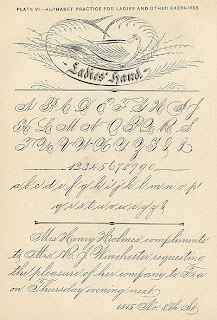 PLATE VI.—ALPHABET PRACTICE FOR LADIES AND OTHER EXERCISES
Ladies' Hand.
A B C D E F G H I J
K L M N O P Q R S
T U V W X Y Z &
1234567890
a b c d e f g h i j k l m n o p
q r s t u v w x y z &
Mrs. Henry Holmes' compliments
to Mrs. W. J. Winchester requesting
the pleasure of her company to Tea
on Thursday evening next
1815 No. 8th St.